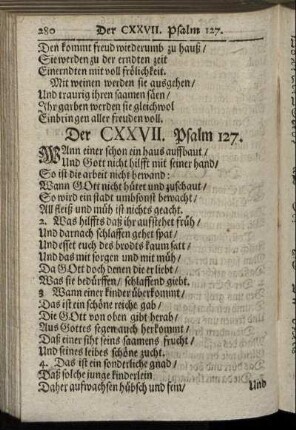 280 Der CXXVII. Psalm 127.
Den kommt freud wiederumb zu hauß/
Sie werden zu der erndten zeit
Einerndten mit voll frölichkeit.
Mit weinen werden sie ausgehen/
Und traurig ihren saamen säen/
Ihr garben werden sie gleichwol
Einbringen aller freuden voll.
Der CXXVII. Psalm 127.
WAnn einer schon ein haus auffbaut/
Und Gott nicht hilfft mit seiner hand/
So ist die arbeit nicht bewand:
Wann GOtt nicht hütet und zuschaut/
So wird ein stadt umbsonst bewacht/
All fleiß und müh ist nichts geacht.
2. Was hilffts daß ihr auffstehet früh/
Und darnach schlaffen gehet spat/
Und esset euch des brodts kaum satt/
Und das mit sorgen und mit müh/
Da GOtt doch denen die er liebt/
Was sie bedürffen/ schlaffend giebt.
3. Wann einer kinder überkommt/
Das ist ein schöne reiche gab/
Die GOtt von oben gibt herab/
Aus Gottes segen auch herkommt/
Daß einer siht seins saamens frucht/
Und seines leibes schöne zucht.
4. Das ist ein sonderliche gnad/
Daß solche junge kinderlein
Daher auffwachsen hübsch und fein/
Und